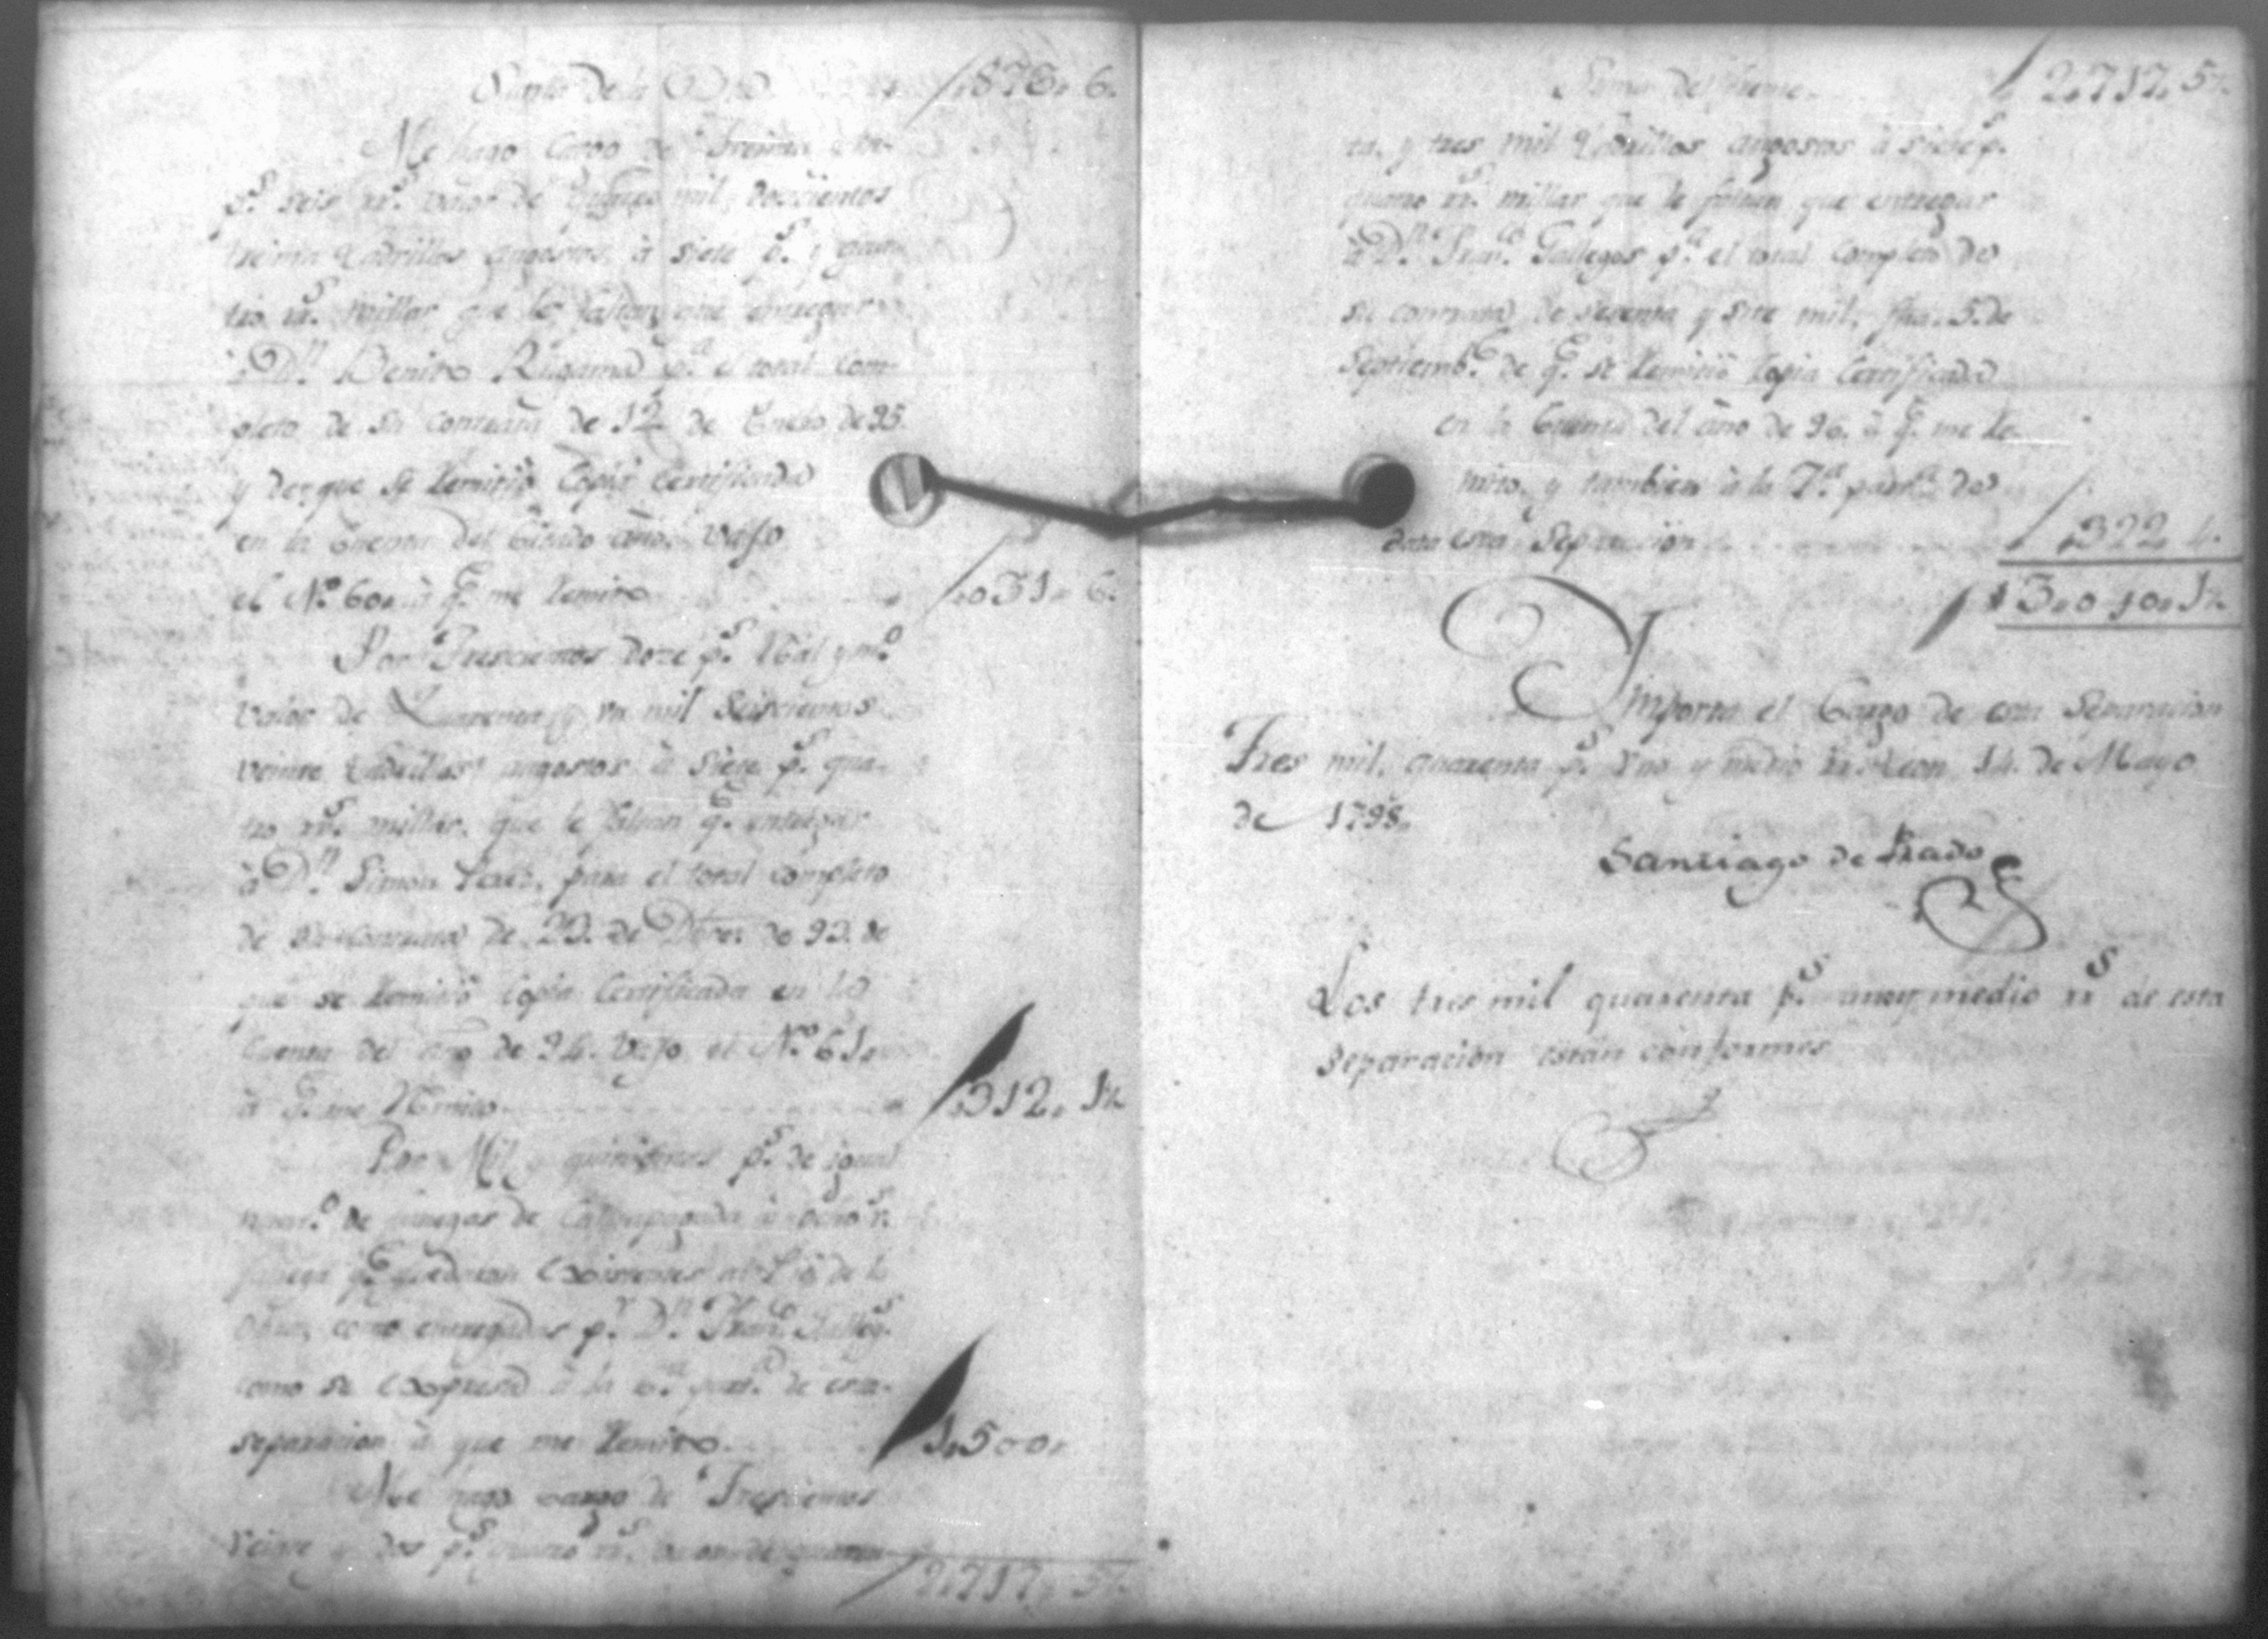 Suma de la Bta. 873„ 6.
Me hago Cargo de Treinta y un
p.s seis r.s valor de mil, doscientos
treinta Ladrillos angostos à siete p.s y qua-
tro r.s millar que le faltan que entregar
à D.n Benito Rugama p.a el total com-
pleto de su contrata de 12 de Enero de 95.
y de que se Remitio Copia Certificada
en la Cuenta del Citado año. vajo
el N.o 60„ à q.e me Remito 031„ 6.
Por Trescientos doze p.s R.al y m.o
valor de Quarenta y un mil Seiscientos
veinte Ladrillos angostos à Siete p.s qua-
tro r.s millar, que le faltan q.e entregar
à D.n Simon para el total completo
de su Contrata de 23. de Dbre. de 93. de
que se Remitio Copia Certificada en la
Cuenta del año de 94. Vajo el N.o 61„
à q.e me Remito. 312„ 1½
Por Mil y quinientos p.s de igual
num.o de fanegas de Cal apagada à ocho r.s
fanega q.e quedaron Existentes de la
Obra, como entregadas p.r D.n Fran.co Galleg.s
como se Expresa à la 6.a part.a de esta
separacion à que me Remito. 1„500„
Me hago cargo de Trescientos
veinte y dos p.s quatro r.s valor de quaren-
2„717„ 5½
Suma del frente. 2„717„ 5½
ta, y tres mil Ladrillos angostos à siete p.s
quatro r.s millar que le faltan que entregar
à D.n Fran.co Gallegos p.a el total Completo de
su contrata de sesenta y siete mil, fha. 5. de
Septiemb.e de q.e se Remitio Copia Certificada
en la Cuenta del año de 96. à q.e me Re-
mito, y tambien à la 7.a part.a de
data esta Separacion 322„ 4.
3„040„ 1½
Importa el Cargo de esta Separacion
Tres mil, quarenta p.s Uno y medio r.s Leon 14. de Mayo
de 1798.
Santiago de Prado
Los tres mil quarenta p.s uno y medio r.s de esta
separacion están conformes